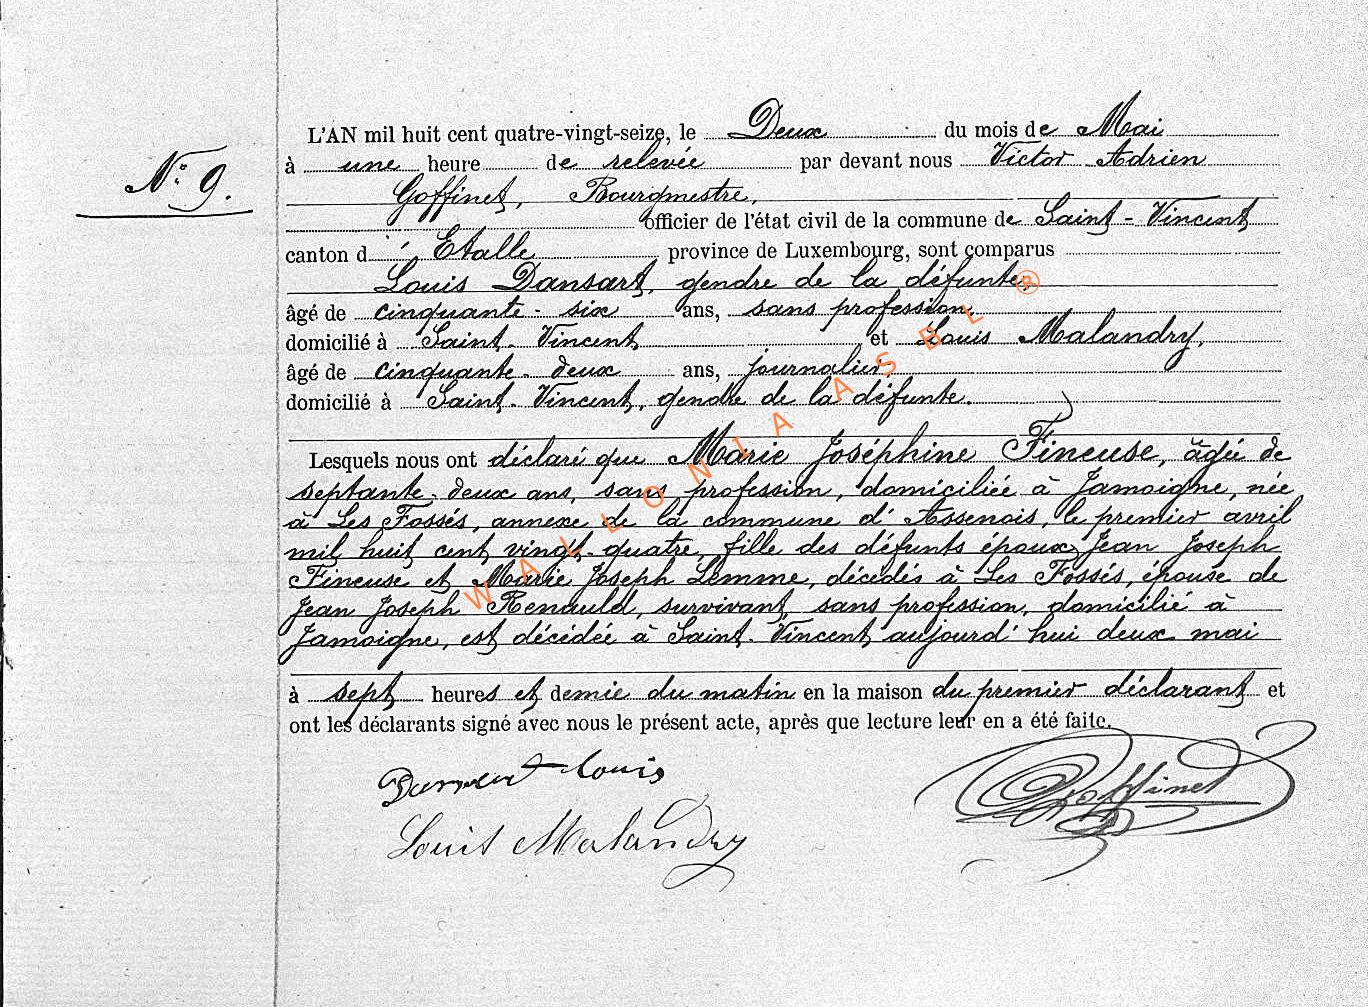 N° 9.
L'AN mil huit cent quatre-vingt-seize, le Deux du mois de Mai
à une heure de relevée par devant nous Victor Adrien
Goffinet, Bourgmestre,
officier de l'état civil de la commune de Saint-Vincent
canton d'Etalle province de Luxembourg, sont comparus
Louis Dansart, gendre de la défunte,
âgé de cinquante-six ans, sans profession,
domicilié à Saint-Vincent et Louis Malandry,
âgé de cinquante-deux ans, journalier,
domicilié à Saint-Vincent, gendre de la défunte.
Lesquels nous ont déclaré que Marie Joséphine Fineuse, âgée de
septante-deux ans, sans profession, domiciliée à Jamoigne, née
à Les Fossés, annexe de la commune d'Assenois, le premier avril
mil huit cent vingt-quatre, fille des défunts époux Jean Joseph
Fineuse et Marie Joseph Lemme, décédés à Les Fossés, épouse de
Jean Joseph Renauld, survivant, sans profession, domicilié à
Jamoigne, est décédée à Saint-Vincent aujourd'hui deux mai
à sept heures et demie du matin en la maison du premier déclarant et
ont les déclarants signé avec nous le présent acte, après que lecture leur en a été faite.
Dansart Louis
Goffinet
Louis Malandry
WALLONIA ASBL ®